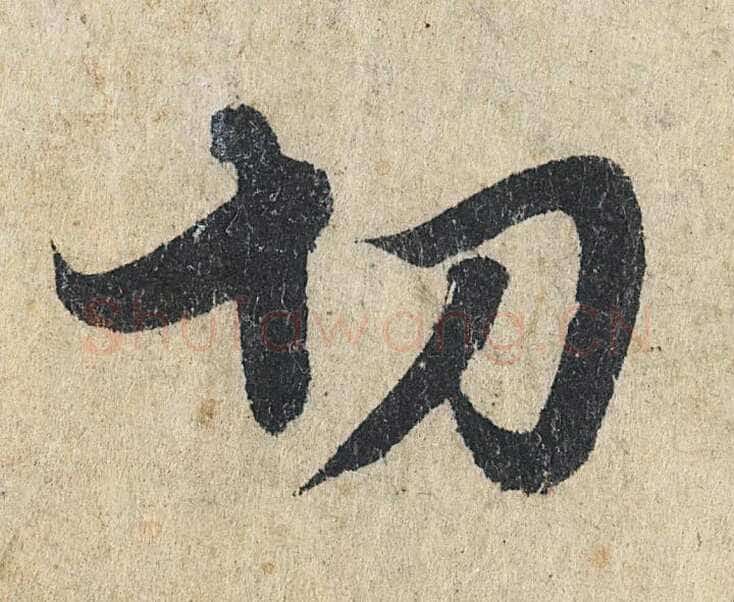 切
Shufawang.CN